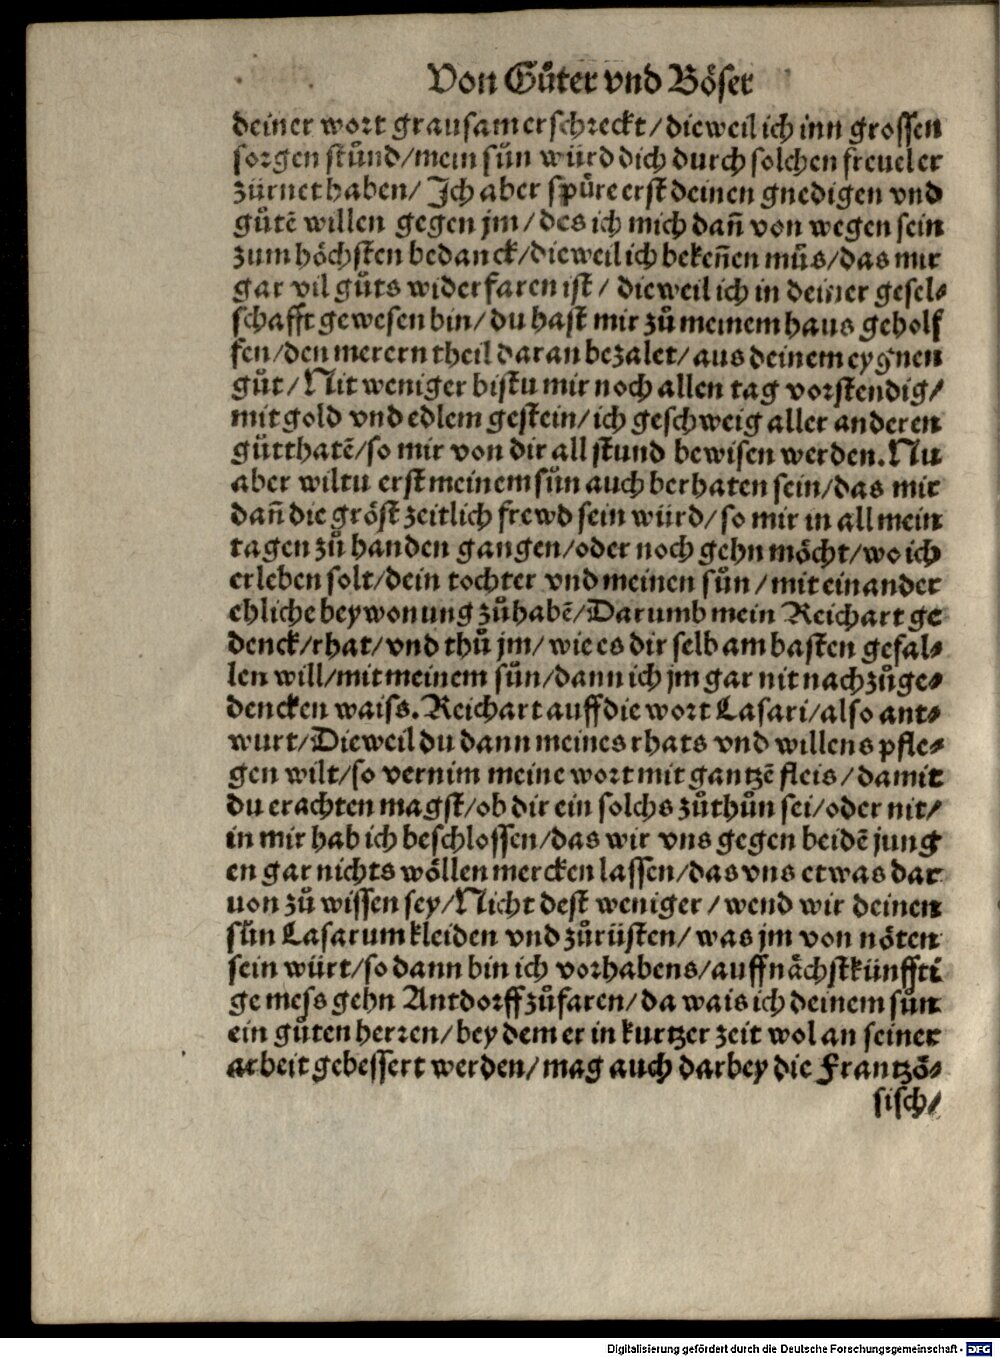 Von Gůter vnd Böser
deiner wort grausam erschreckt / dieweil ich inn grossen
sorgen stůnd / mein sůn würd dich durch solchen freuel er
zürnet haben / Ich aber spüre erst deinen gnedigen vnd
gůtē willen gegen jm / des ich mich dañ von wegen sein
zum höchsten bedanck / dieweil ich bekeñen můs / das mir
gar vil gůts widerfaren ist / dieweil ich in deiner gesel⸗
schafft gewesen bin / du hast mir zů meinem haus geholf
fen / den merern theil daran bezalet / aus deinem eygnen
gůt / Nit weniger bistu mir noch allen tag vorstendig /
mit gold vnd edlem gestein / ich geschweig aller anderen
gůtthatē / so mir von dir all stund bewisen werden. Nu
aber wiltu erst meinem sůn auch berhaten sein / das mir
dañ die gröst zeitlich frewd sein würd / so mir in all mein
tagen zů handen gangen / oder noch gehn möcht / wo ich
erleben solt / dein tochter vnd meinen sůn / mit einander
ehliche beywonung zůhabē / Darumb mein Reichart ge
denck / rhat / vnd thů jm / wie es dir selb am basten gefal⸗
len will / mit meinem sůn / dann ich jm gar nit nachzůge⸗
dencken waiss. Reichart auff die wort Lasari / also ant⸗
wurt / Dieweil du dann meines rhats vnd willens pfle⸗
gen wilt / so vernim meine wort mit gantzē fleis / damit
du erachten magst / ob dir ein solchs zůthůn sei / oder nit /
in mir hab ich beschlossen / das wir vns gegen beidē jung
en gar nichts wöllen mercken lassen / das vns etwas dar
uon zů wissen sey / Nicht dest weniger / wend wir deinen
sůn Lasarum kleiden vnd zůrüsten / was jm von nöten
sein würt / so dann bin ich vorhabens / auff nächstkünffti
ge mess gehn Antdorff zůfaren / da wais ich deinem sůn
ein gůten herren / bey dem er in kurtzer zeit wol an seiner
arbeit gebessert werden / mag auch darbey die Frantzö⸗
sisch /
Digitalisierung gefördert durch die Deutsche Forschungsgemeinschaft - DFG